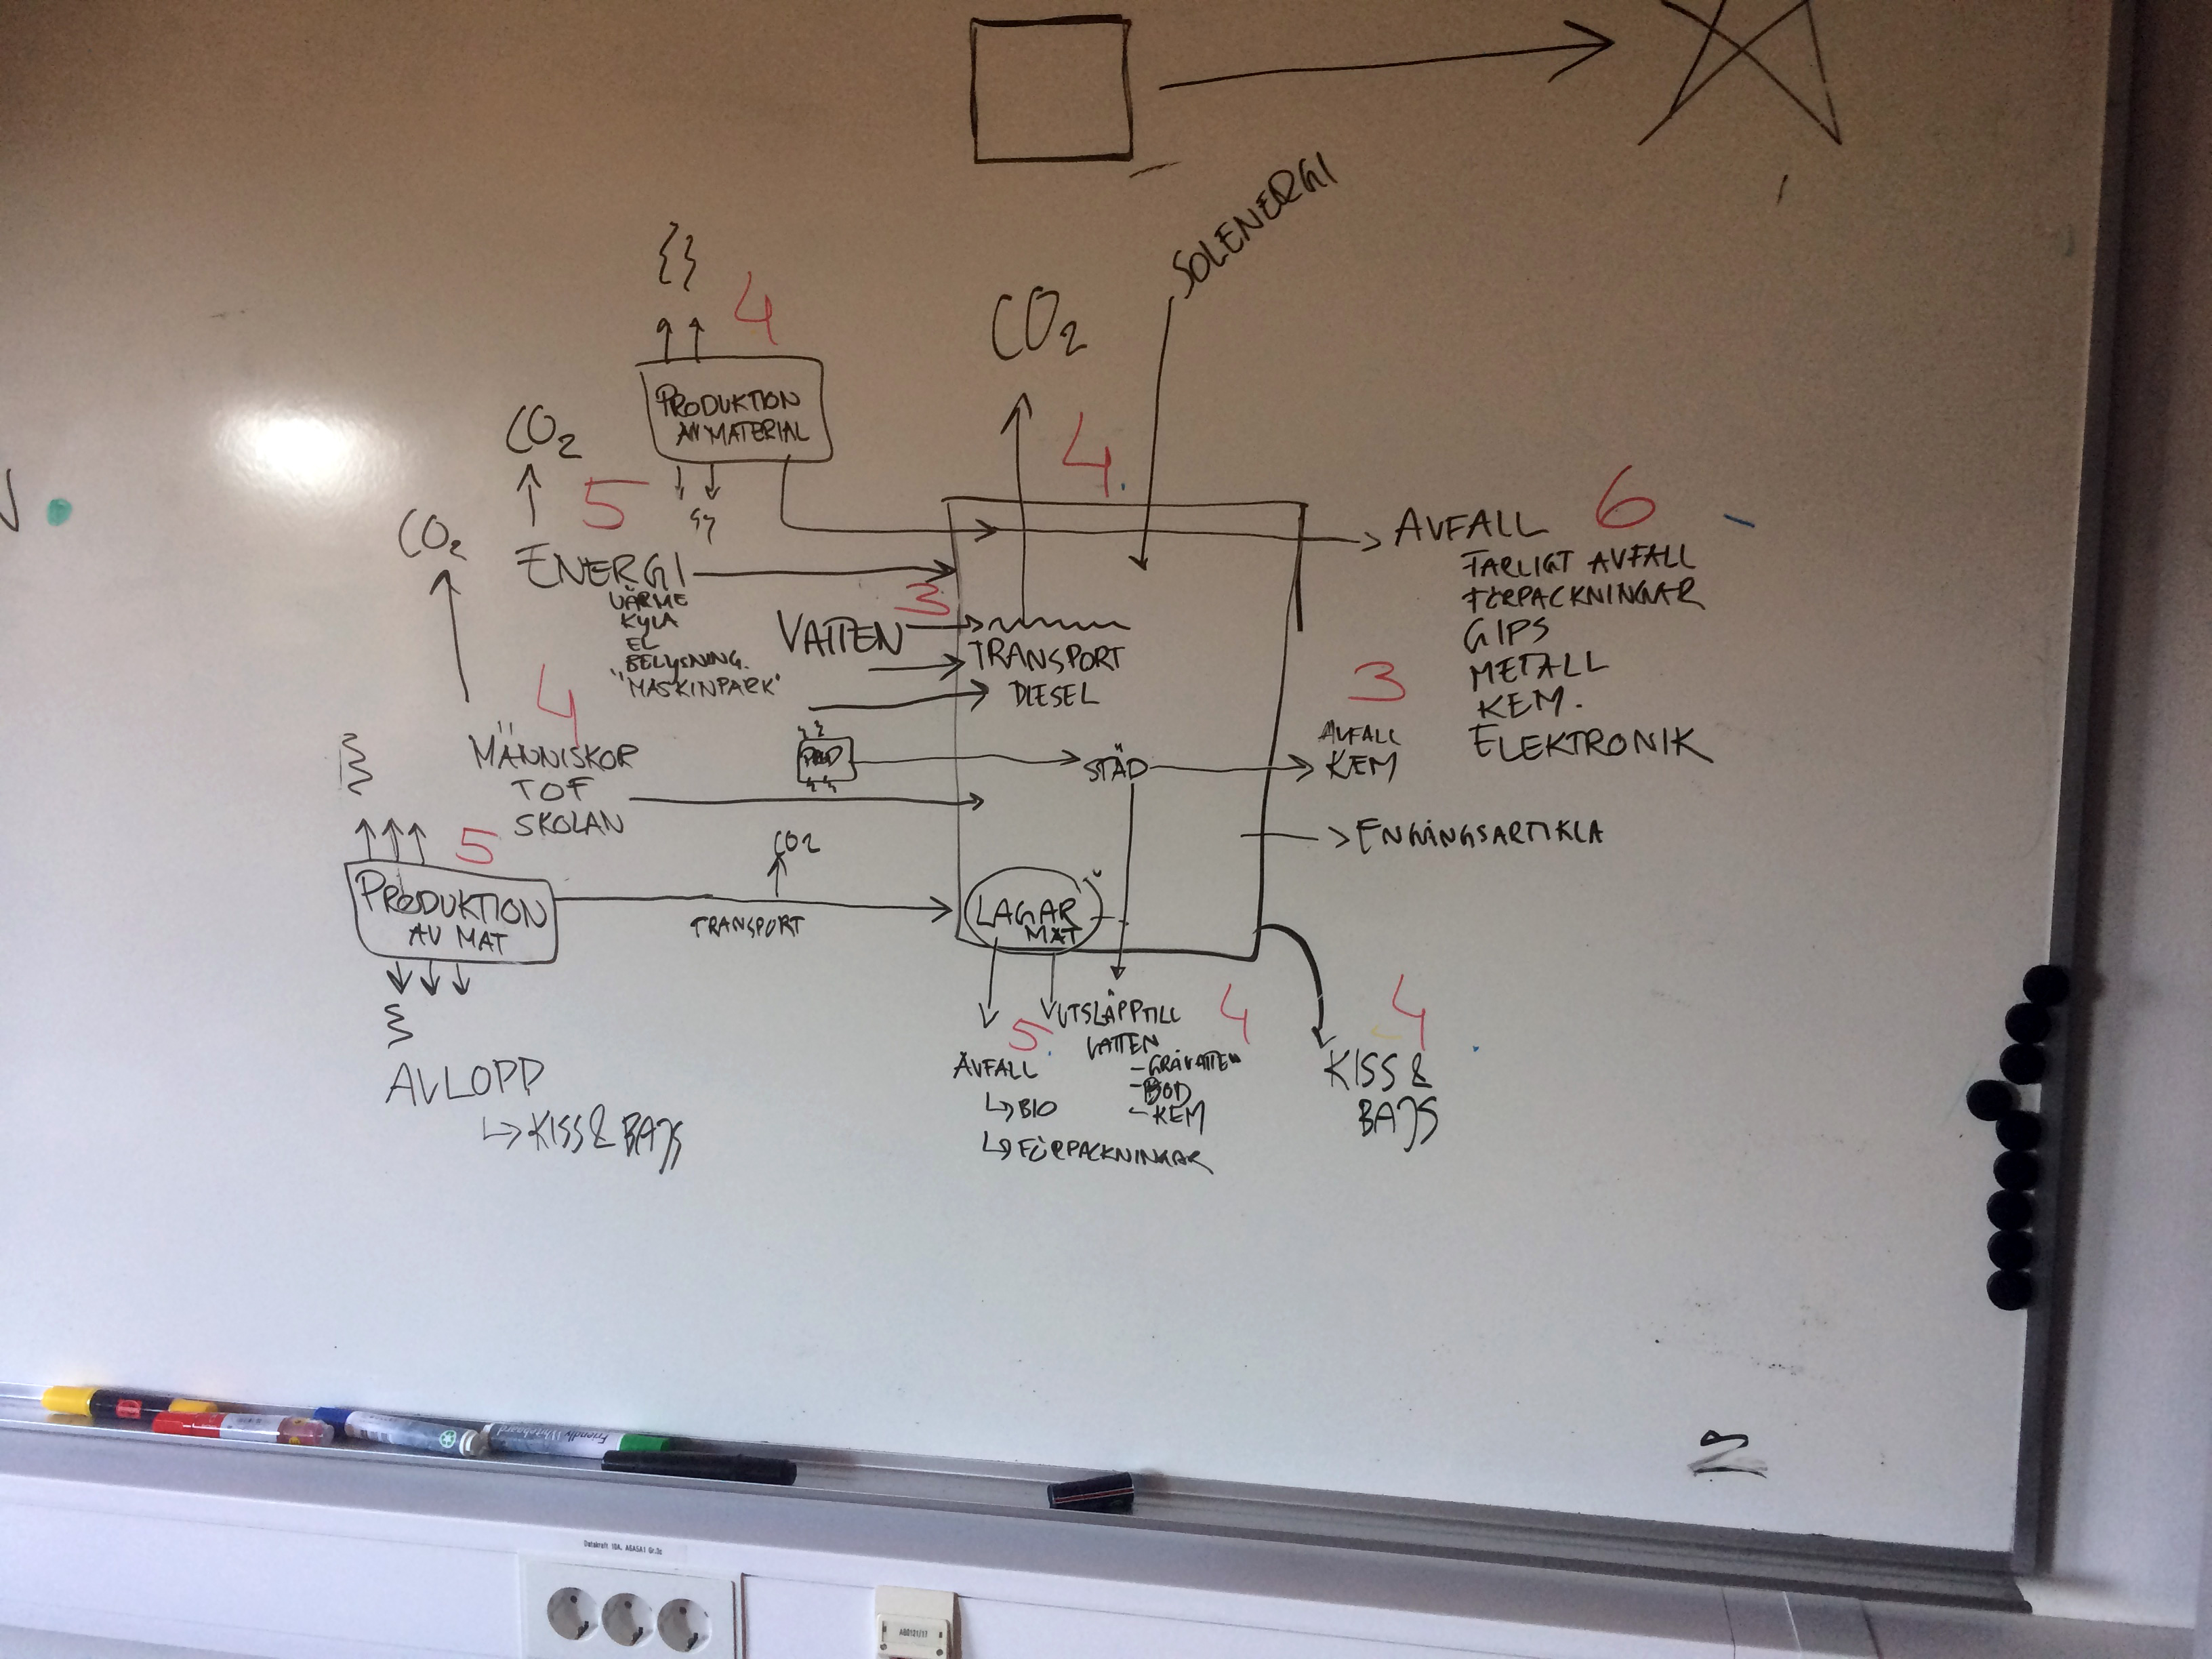 SOLENERGI
4
CO2
PRODUKTION
AV MATERIAL
CO2
4
5
CO2
ENERGI
VÄRME
KYLA
EL
BELYSNING.
"MASKINPARK"
3
VATTEN
TRANSPORT
DIESEL
AVFALL 6
FARLIGT AVFALL
FÖRPACKNINGAR
GIPS
METALL
KEM.
ELEKTRONIK
4
MÄNNISKOR
TOF
SKOLAN
PROD
STÄD
3
AVFALL
KEM
ENGÅNGSARTIKLA
5
PRODUKTION
AV MAT
CO2
TRANSPORT
LAGAR
MAT
AVLOPP
KISS & BAJS
5
AVFALL
BIO
FÖRPACKNINGAR
UTSLÄPP TILL
VATTEN
- GRÅVATTEN
- BOD
- KEM
4
4
KISS &
BAJS
Friendly Whiteboard
Datakraft 10A, A6ASA1 Gr.2c